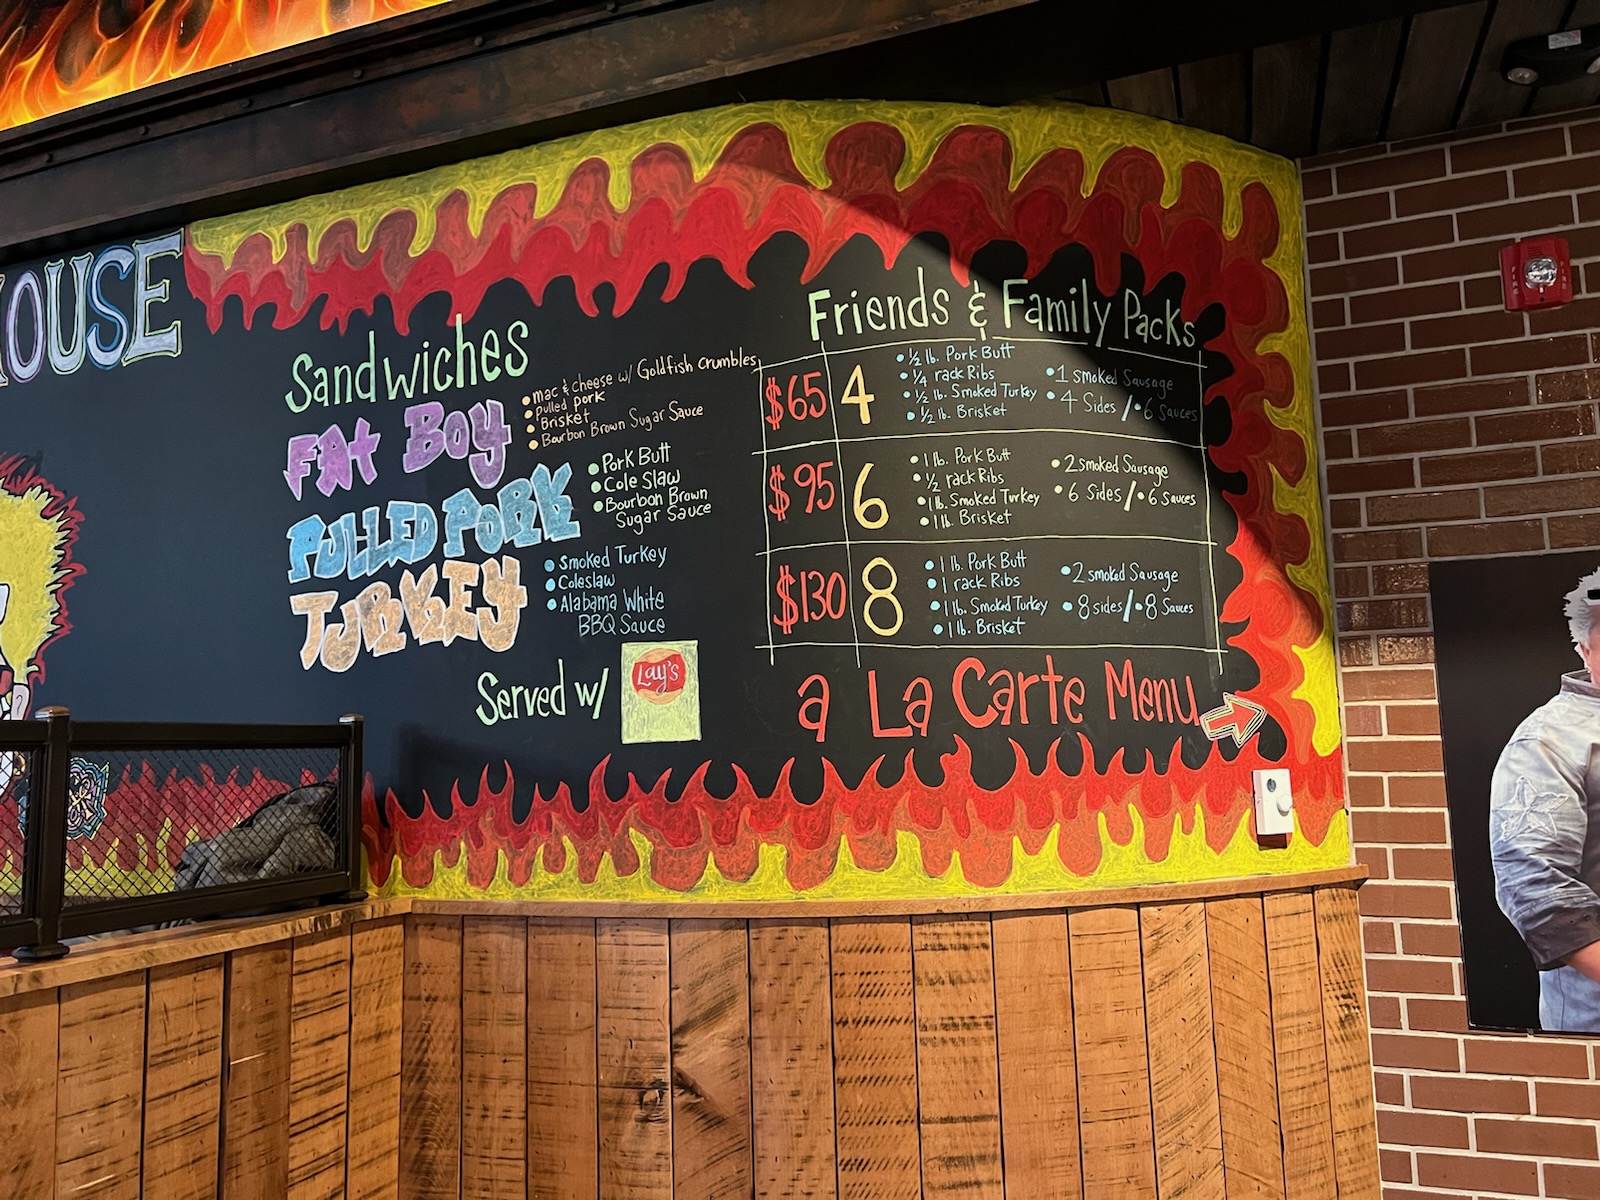 OUSE
Sandwiches
FAt BOY
• mac & cheese w/ Goldfish crumbles
• pulled pork
• Brisket
• Bourbon Brown Sugar Sauce
PULLED PORK
• Pork Butt
• Cole Slaw
• Bourbon Brown
Sugar Sauce
TURKEY
• Smoked Turkey
• Coleslaw
• Alabama White
BBQ Sauce
Served w/
Lay's
Friends & Family Packs
$65 4
• ½ lb. Pork Butt
• ¼ rack Ribs
• ½ lb. Smoked Turkey
• ½ lb. Brisket
• 1 smoked Sausage
• 4 Sides / • 6 Sauces
$95 6
• 1 lb. Pork Butt
• ½ rack Ribs
• 1 lb. Smoked Turkey
• 1 lb. Brisket
• 2 smoked Sausage
• 6 Sides / • 6 Sauces
$130 8
• 1 lb. Pork Butt
• 1 rack Ribs
• 1 lb. Smoked Turkey
• 1 lb. Brisket
• 2 smoked Sausage
• 8 sides / • 8 Sauces
a La Carte Menu
FIRE
FIRE